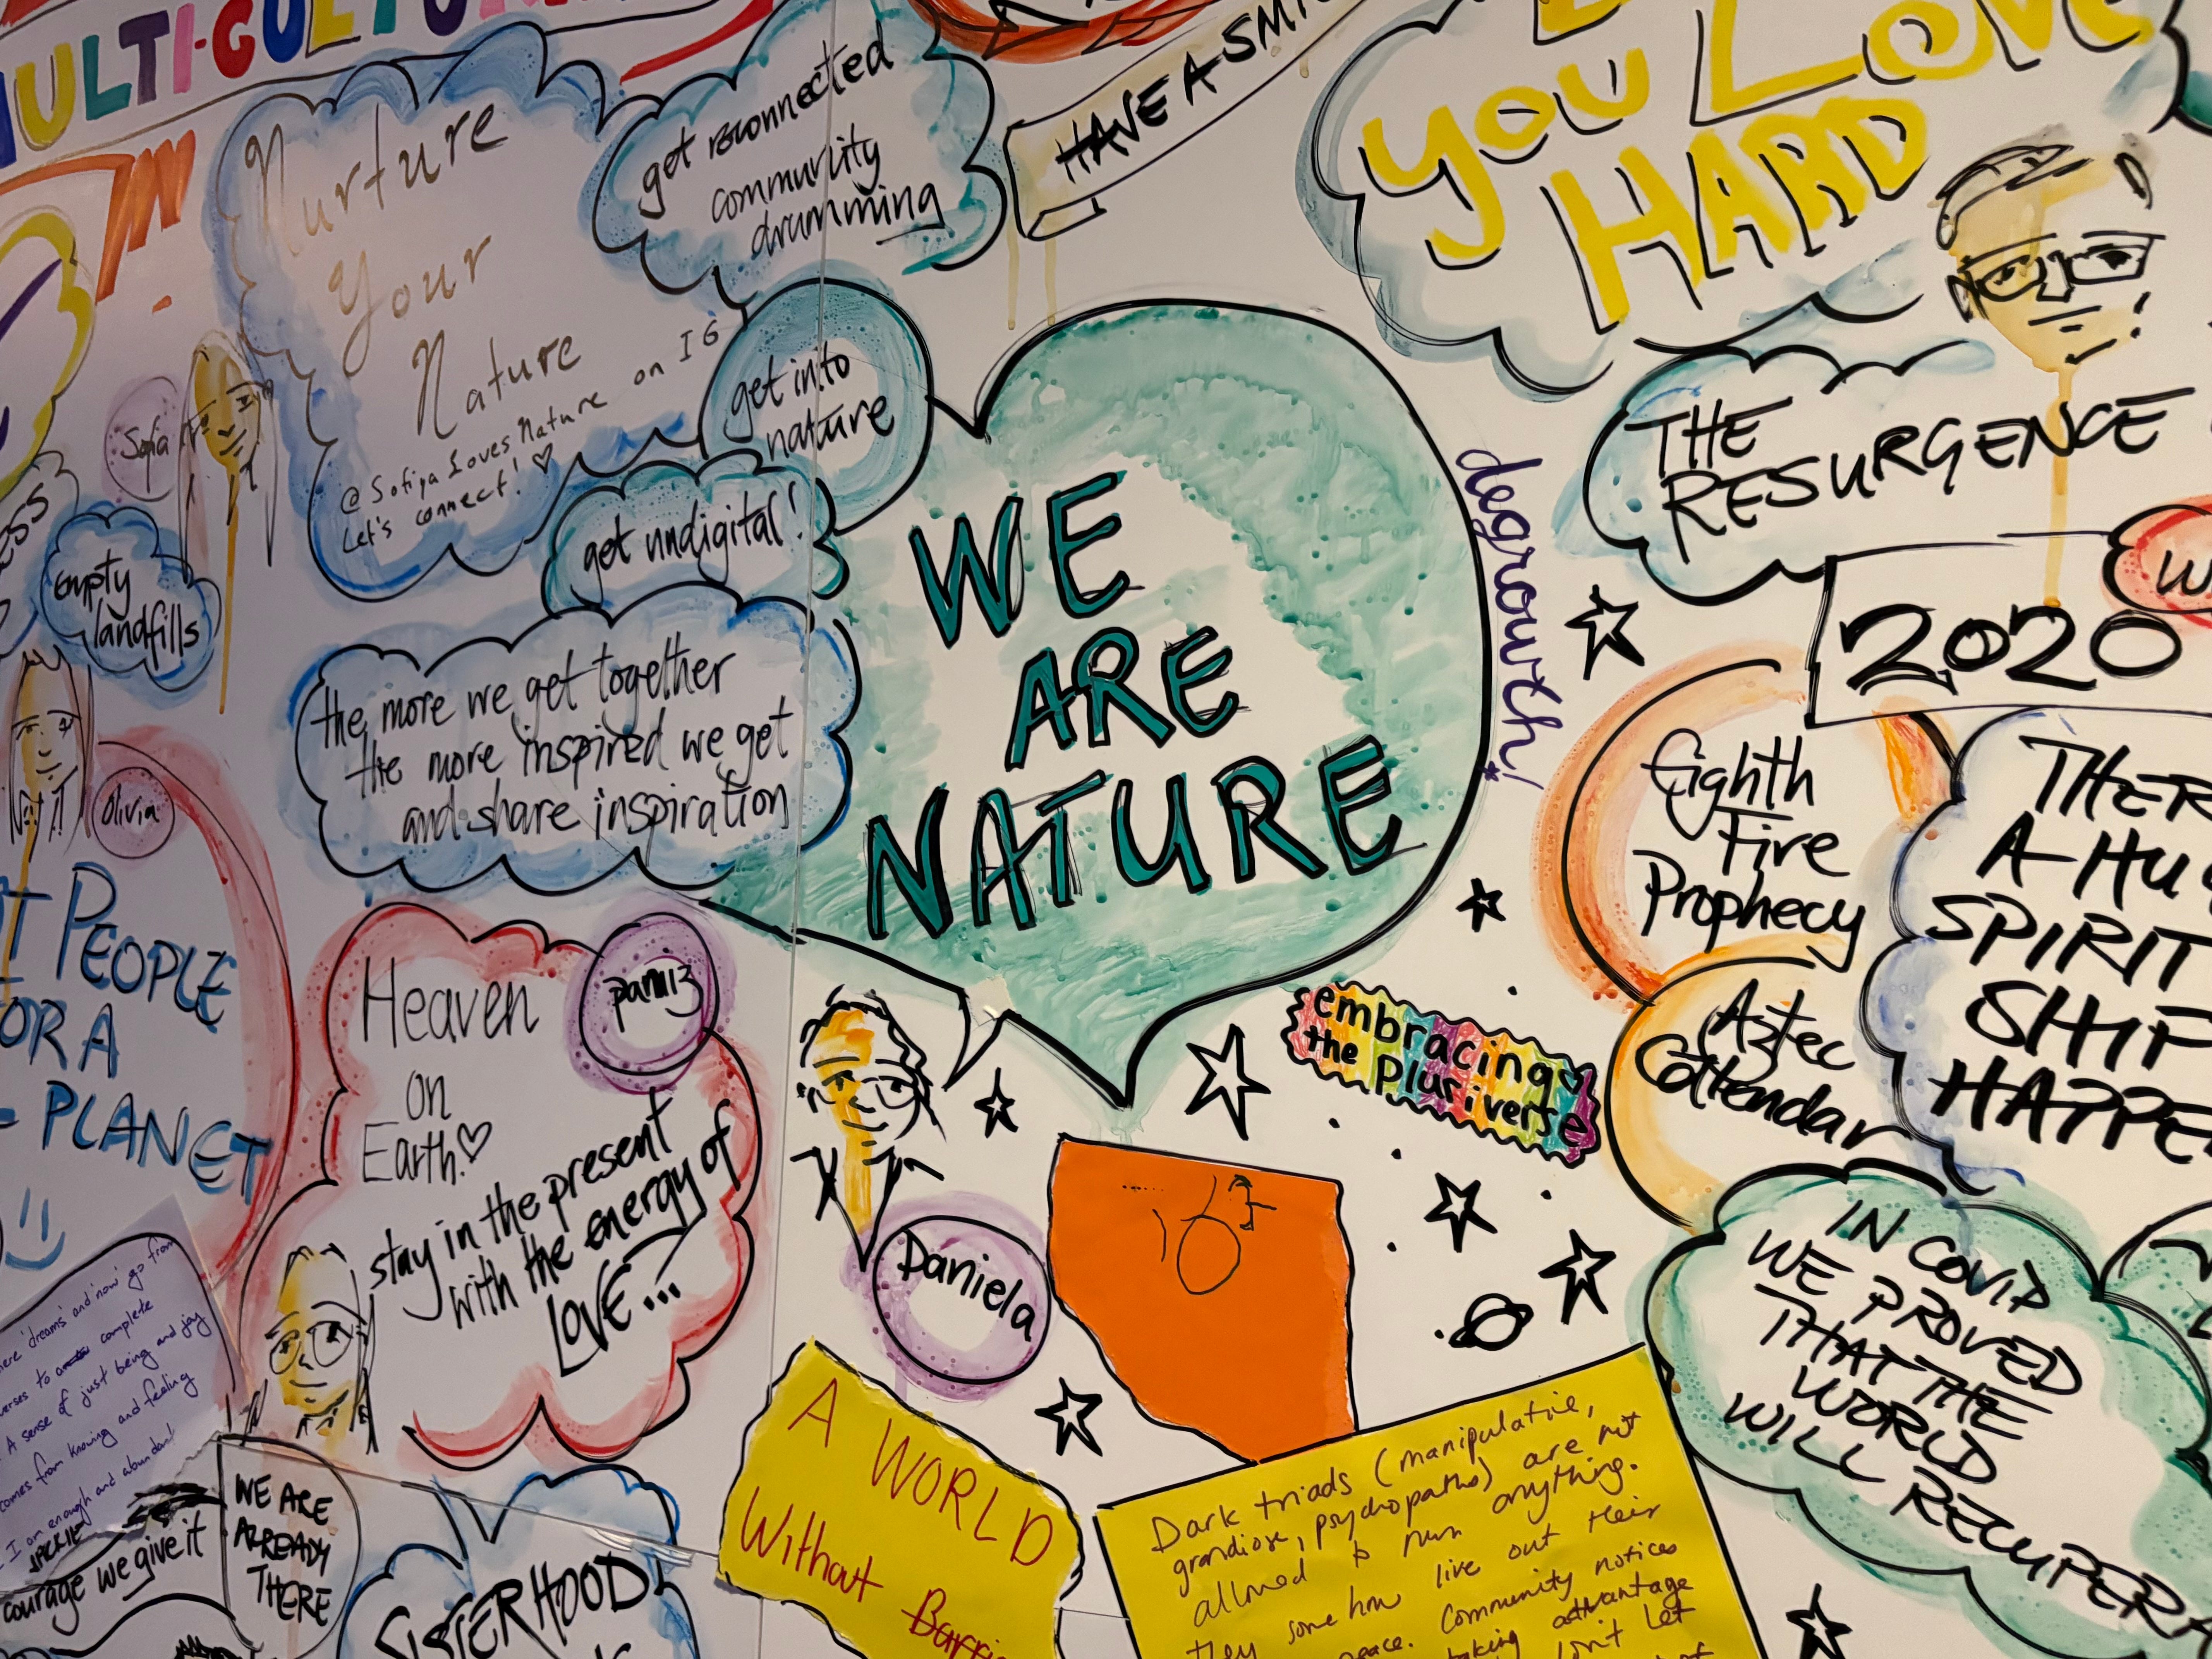 MULTI-CULTURA
Nurture
Your
Nature
@ Sofiya Loves Nature on IG
Let's connect! ♡
get reconnected
community
drumming
HAVE A SMI
YOU LOVE
HARD
get into
nature
get undigital!
Sofia
empty
landfills
the more we get together
the more inspired we get
and share inspiration
WE
ARE
NATURE
degrowth!
THE
RESURGENCE
2020
Eighth
Fire
Prophecy
Aztec
Callendar
THER
A HU
SPIRIT
SHIF
HAPPE
IN COVID
WE PROVED
THAT THE
WORLD
WILL RECUPERA
Olivia
PEOPLE
OR A
PLANET
Heaven
on
Earth ♡
paniz
stay in the present
with the energy of
LOVE...
embracing
the Pluriverse
Daniela
'dreams' and 'now' go from
to complete
A sense of just being and joy
comes from knowing and feeling
I am enough and abundant
JACKIE
courage we give it
WE ARE
ALREADY
THERE
SISTERHOOD
A WORLD
Without Barri
Dark triads (manipulative,
grandiose, psychopaths) are not
allowed to run anything.
they some how live out their
peace. Community notices
taking advantage
don't let